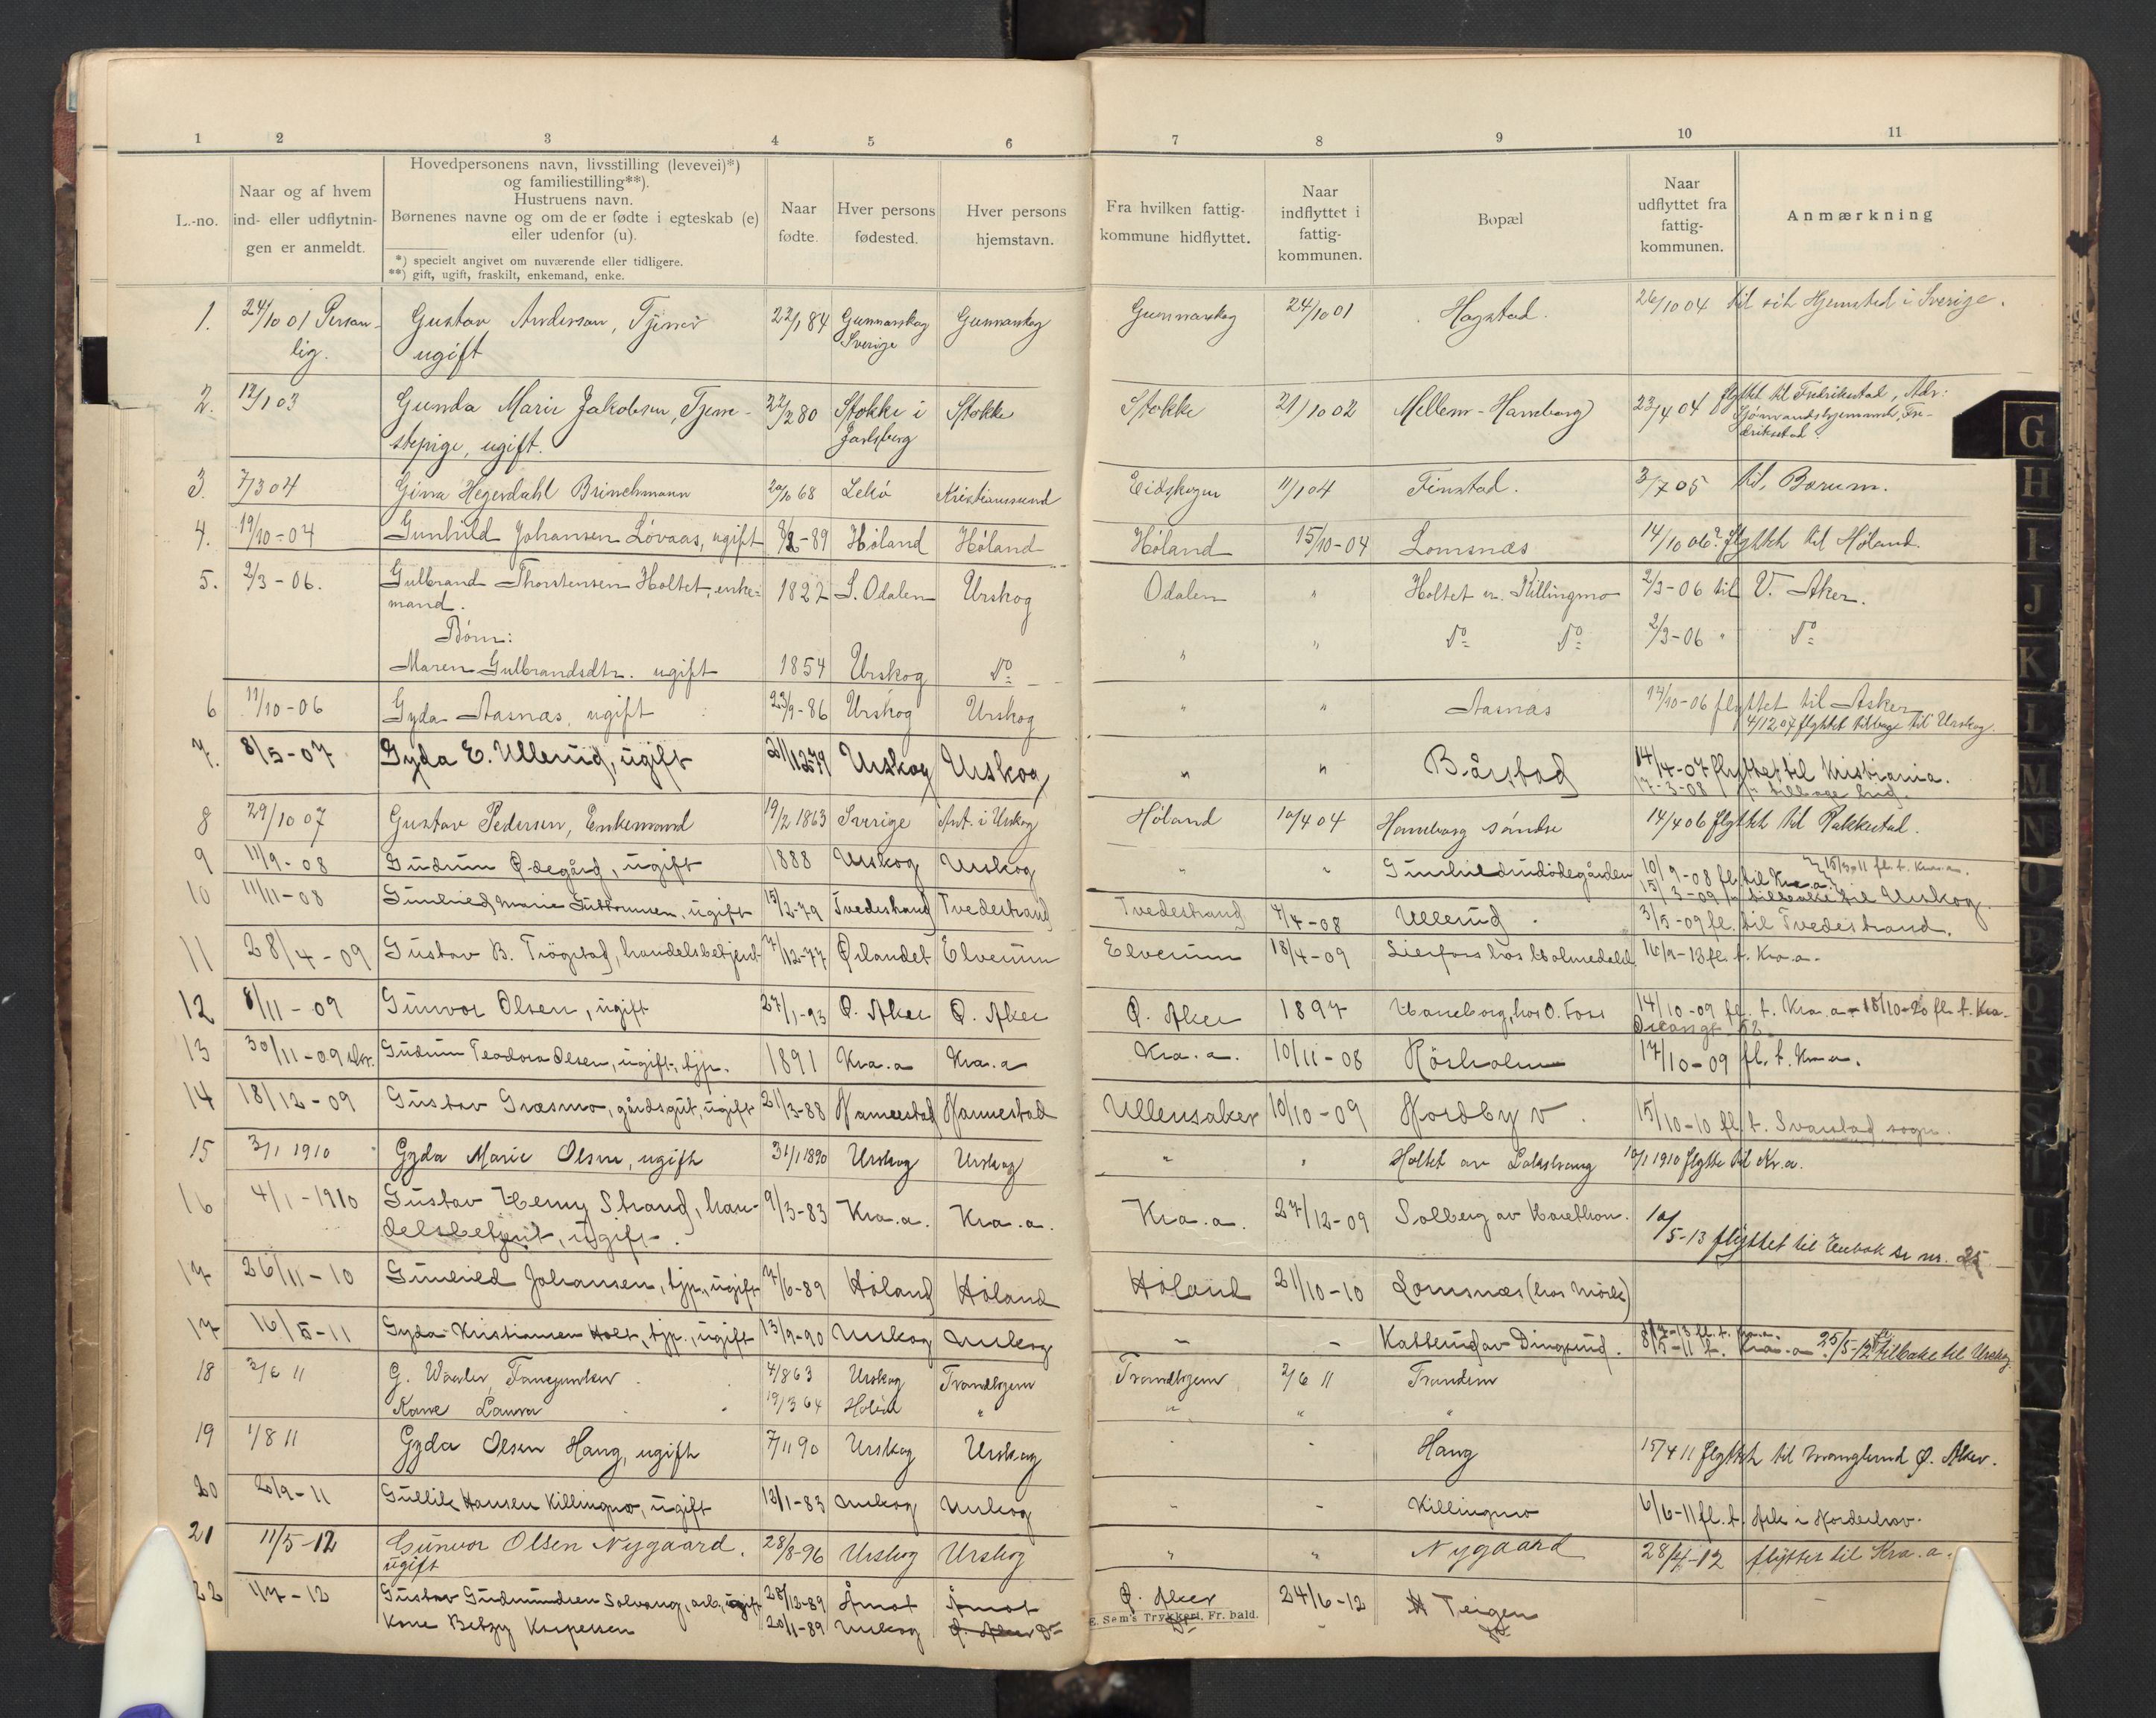 1 2 3 4 5 6 7 8 9 10 11
L.-no.
Naar og af hvem
ind- eller udflytnin-
gen er anmeldt.
Hovedpersonens navn, livsstilling (levevei)*)
og familiestilling**).
Hustruens navn.
Børnenes navne og om de er fødte i egteskab (e)
eller udenfor (u).
*) specielt angivet om nuværende eller tidligere.
**) gift, ugift, fraskilt, enkemand, enke.
Naar
fødte.
Hver persons
fødested.
Hver persons
hjemstavn.
Fra hvilken fattig-
kommune hidflyttet.
Naar
indflyttet i
fattig-
kommunen.
Bopæl
Naar
udflyttet fra
fattig-
kommunen.
Anmærkning
1. 24/10 01 Person- Gustav Anderson, Tjener 22/1 84 Gunnarskog Gunnarskog Gunnarskog 24/10 01 Hogstad. 26/10 04 til sit Hjemsted i Sverige.
lig. ugift Sverige
2. 12/1 03 Gunda Marie Jakobsen, Tjene- 22/2 80 Stokke i Stokke Stokke 21/10 02 Mellem-Haneborg 23/4 04 flyttet til Fredrikstad, Adr:
stepige, ugift. Jarlsberg Sjømandshjemmet, Fre-
drikstad.
3. 7/3 04 Gina Hegerdahl Brinchmann 20/10 68 Lekø Kristianssund Eidskogen 11/1 04 Finstad. 3/7 05 til Bærum.
4. 19/10-04 Gunhild Johansen Løvaas, ugift 8/2-89 Høland Høland Høland 15/10-04 Lomsnæs 14/10 06? flyttet til Høland.
5. 2/3-06. Gulbrand Thorstensen Holtet, enke- 1827 S. Odalen Urskog Odalen " Holtet u. Killingmo 2/3-06 til V. Aker.
mand.
Børn:
Maren Gulbrandsdtr. ugift 1854 Urskog Do " " Do Do 2/3-06 " Do
6 11/10-06 Gyda Aasnæs, ugift 23/9-86 Urskog Urskog " " Aasnæs 14/10-06 flyttet til Asker
4/12 07 flyttet tilbage til Urskog.
7. 8/5-07 Gyda E. Ullerud, ugift 21/12-79 Urskog Urskog " " Bårstad 14/4-07 flyttet til Kristiania.
17-3-08 fl. tilbage hid.
8 29/10 07 Gustav Pedersen, Enkemand 19/2 1863 Sverige Ant. i Urskog Høland 10/4 04 Haneborg søndre 14/4 06 flyttet til Rakkestad.
9 11/9-08 Gudrun Ødegård, ugift 1888 Urskog Urskog " " Gunhildrudødegården 10/9-08 fl. til Kra.a. 15/3-11 fl. t. Kra.a.
15/3-09 fl. tilbake til Urskog.
10 11/11-08 Gunhild Marie Guttormsen, ugift 15/2-79 Tvedestrand Tvedestrand Tvedestrand 4/4-08 Ullerud. 3/5-09 fl. til Tvedestrand.
11 28/4-09 Gustav B. Trøgstad, handelsbetjent 7/12-77 Ørlandet Elverum Elverum 18/4-09 Lierfoss hos Holmedahl 16/9-13 fl. t. Kra.a.
12 8/11-09 Gunvor Olsen, ugift 27/1-93 Ø. Aker Ø. Aker Ø. Aker 1897 Haneborg, hos O. Foss 14/10-09 fl. t. Kra.a - 18/10-20 fl. t. Kra.
13 30/11-09 skr. Gudrun Teodora Olsen, ugift, tjp. 1891 Kra.a Kra.a Kra.a. 10/11-08 Rösholm 17/10-09 fl. t. Kra.a.
14 18/12-09 Gustav Græsmo, gårdsgut, ugift 21/3-88 Nannestad Nannestad Ullensaker 10/10-09 Nordby v. 15/10-10 fl. t. Svarstad sogn.
15 3/1 1910 Gyda Marie Olsen, ugift 31/1 1890 Urskog Urskog " " Holtet av Lakstvang 10/1 1910 flytte til Kr.a.
16 4/1-1910 Gustav Henry Strand, han- 9/3-83 Kra.a. Kra.a. Kra.a. 27/12-09 Solberg av Harethon. 10/5-13 flyttet til Enebak se nr. 25
delsbetjent, ugift.
17 26/11-10 Gunhild Johansen, tjp., ugift 7/6-89 Høland Høland Høland 21/10-10 Lomsnæs (hos Mörk)
17 16/5-11 Gyda Kristiansen Holt, tjp., ugift 13/9-90 Urskog Urskog " - Katterud av Dingsrud. 8/5-11 t. Kra.a 25/5-12 fl. tilbake til Urskog.
18 3/6 11 G. Waaler, Fanejunker 4/8 63 Urskog Trondhjem Trondhjem 2/6 11 Frandem
Kone Laura 19/3 64 Høland " " " "
19 1/8 11 Gyda Olsen Haug, ugift 7/11 90 Urskog Urskog " " Haug 15/4 11 flyttet til Manglerud Ø. Aker.
20 20/9-11 Gullik Hansen Killingmo, ugift 12/1-83 Urskog Urskog " - Killingmo 6/6-11 fl. t. Ask i Norderhov.
21 11/5-12 Gunvor Olsen Nygaard. 28/8-96 Urskog Urskog " " Nygaard 28/4-12 flyttet til Kra.a.
ugift
22 1/7-12 Gustav Gudmundsen Solvang, arb., ugift 28/12-89 Åmot Åmot Ø. Aker 24/6-12 Teigen
Kone Betzy Kaspersen 20/1-89 Urskog Ø. Aker Do Do " Do
E. Sem's Trykkeri, Fr.hald.
G
H
I
J
K
L
M
N
O
P
Q
R
S
T
U
V
W
X
Y
Z
Æ
Ø